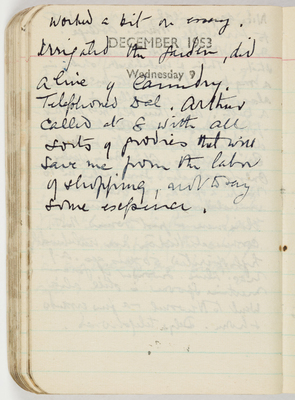 Worked a bit on essay.
DECEMBER 1953
Irrigated the garden, did
Wednesday 9
a line of laundry.
Telephoned Del. Arthur
called at 8 with all
sorts of goodies that will
save me from the labor
of shopping, not to say
some expense.